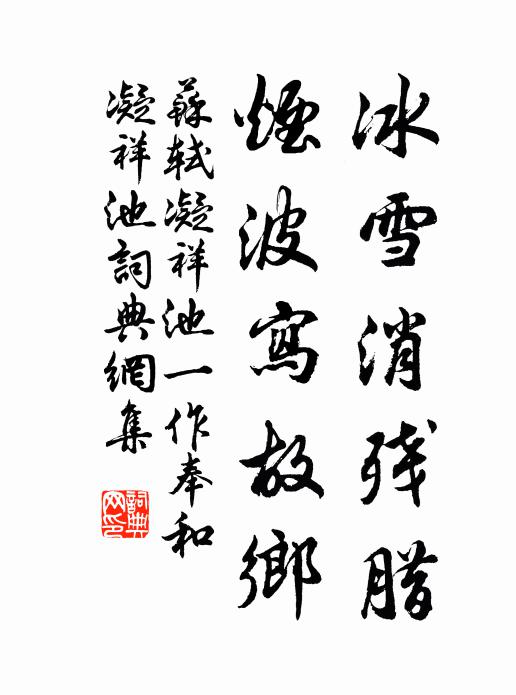 冰雪消残腊
煙波寫故鄉
蘇軾凝祥池一作奉和
凝祥池詞典網集
詞典網印